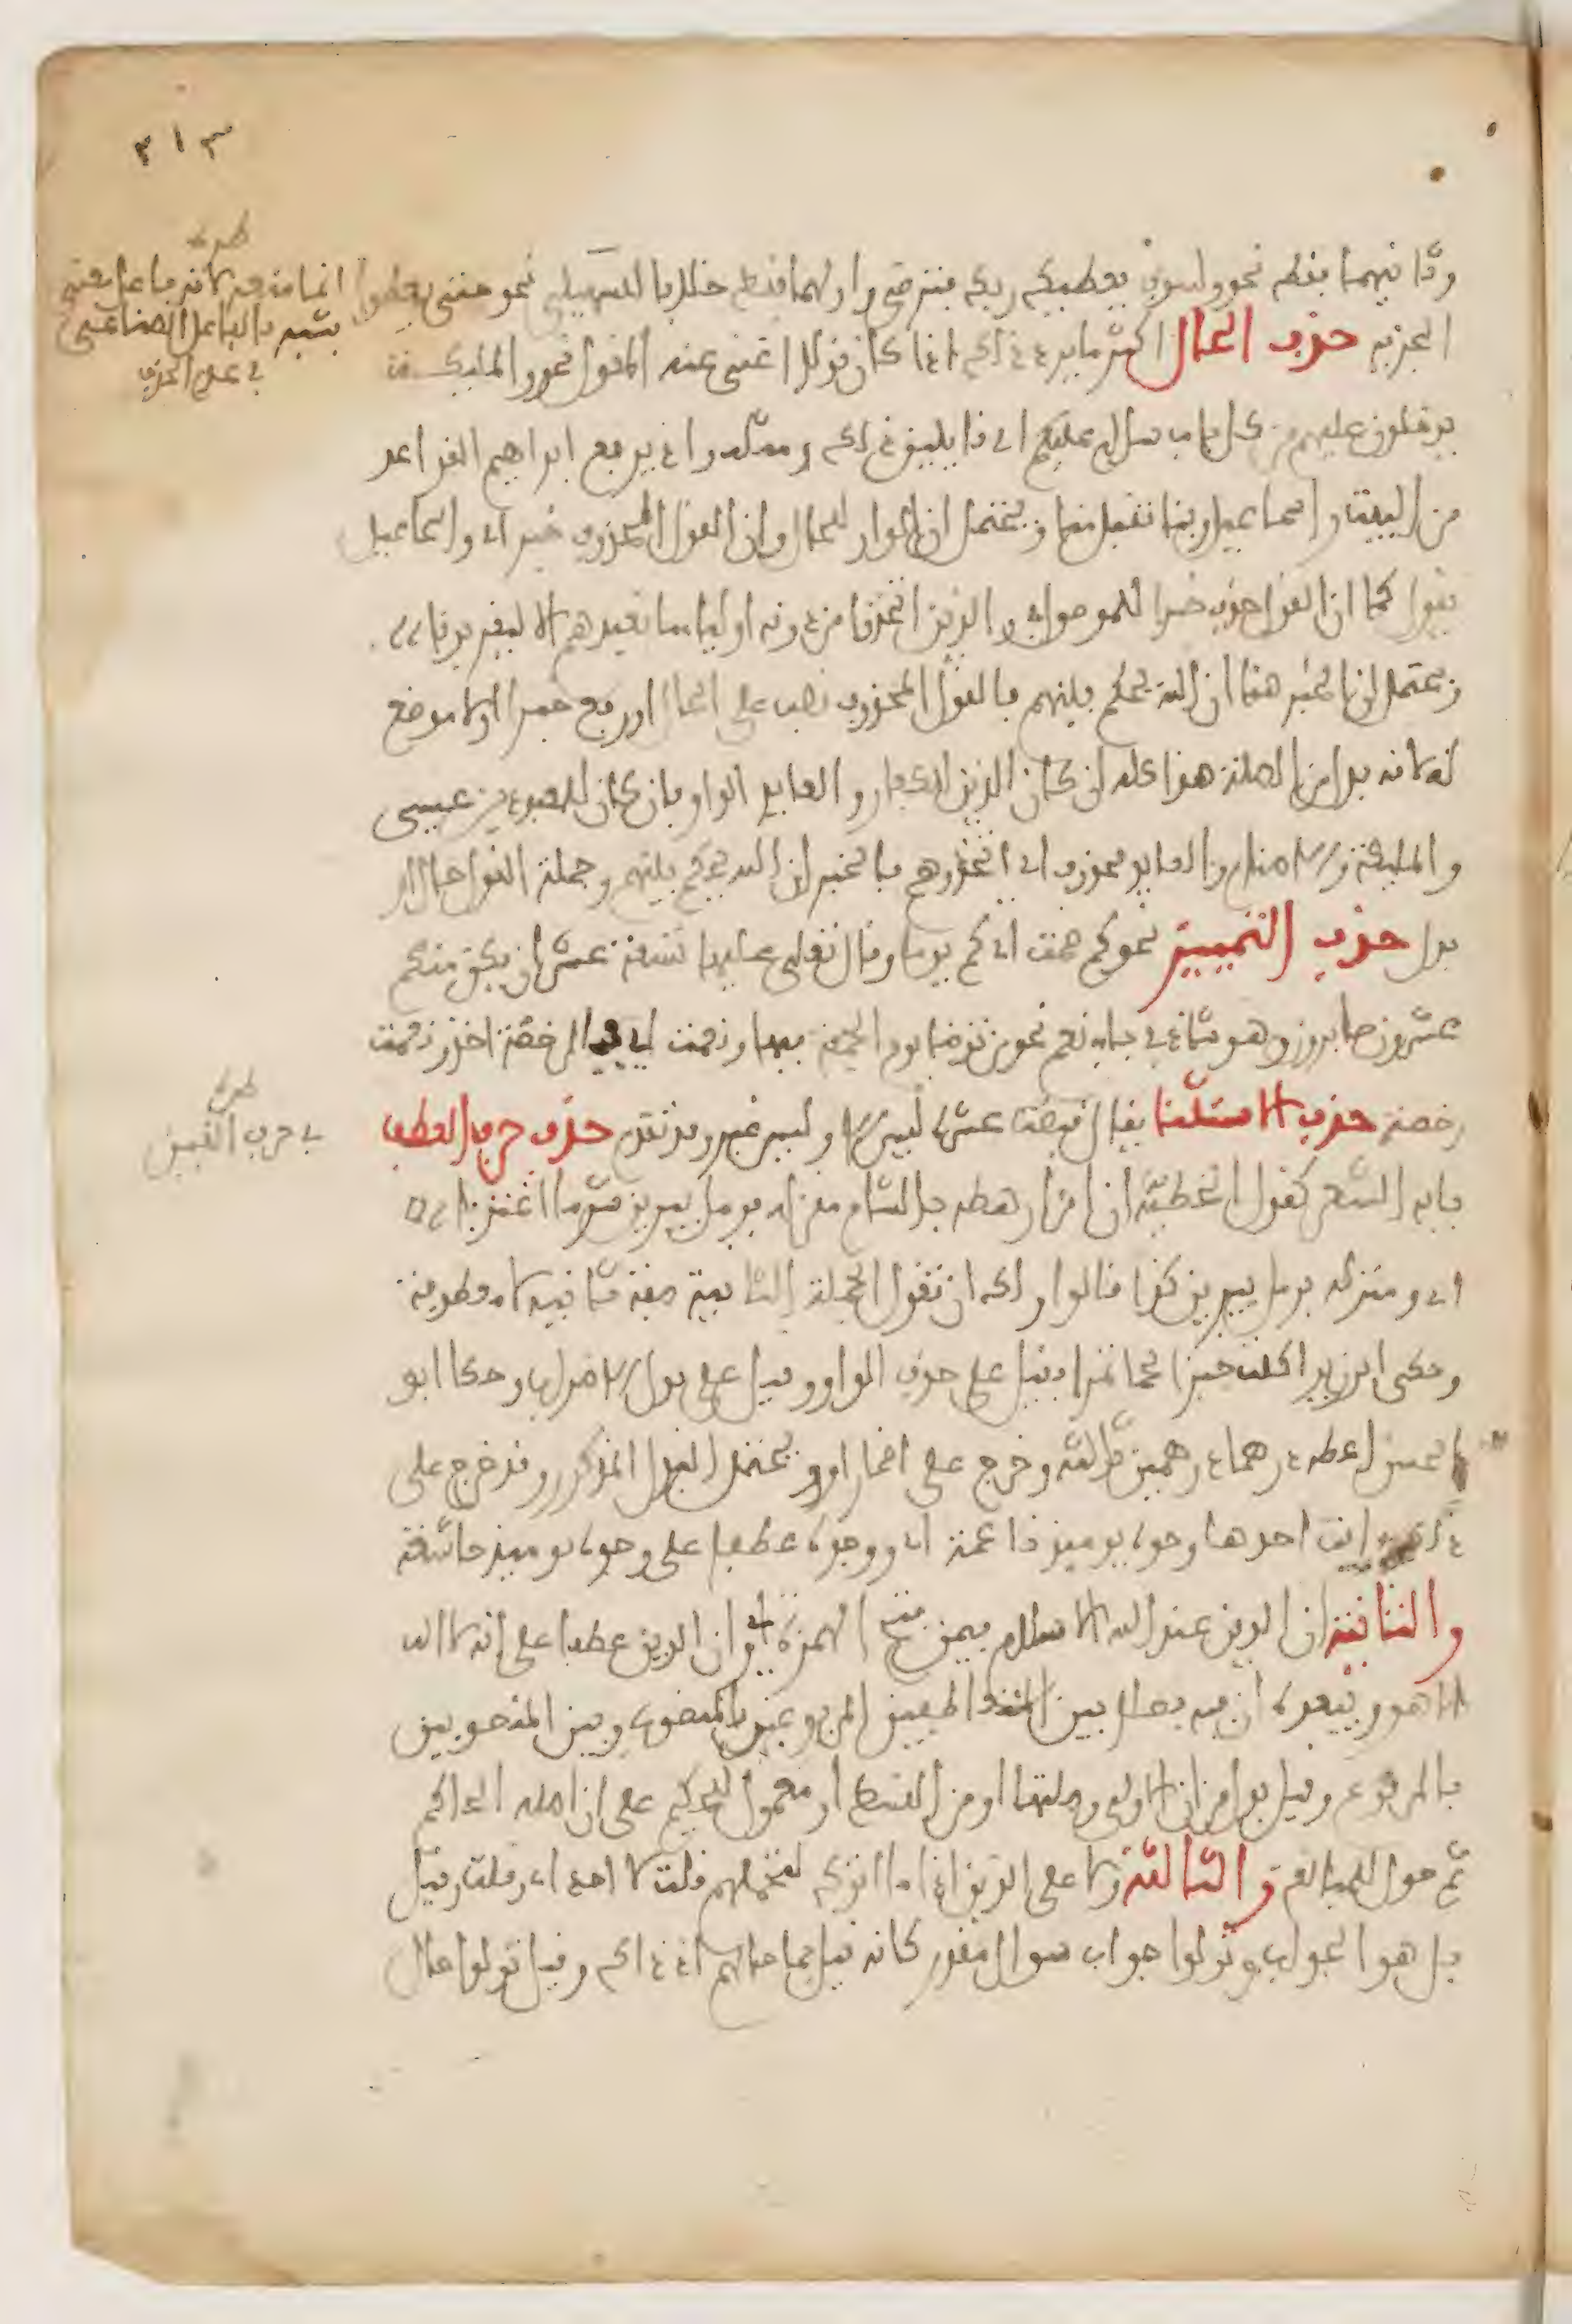 ٣١٣
وثانيهما فقط نحو ولسوف يعطيك ربك فترضى واولهما فقط خلافا للسهيلي نحو حتى يعطوا
الجزية حذف الحال اكثر ما يرد ذلك اذا كان قولا اغنى عنه المقول نحو والمليكة
يدخلون عليهم من كل باب سلام عليكم اي قايلين ذلك ومثله واذ يرفع ابراهيم القواعد
من البيت واسماعيل ربنا تقبل منا ويحتمل ان الواو للحال وان القول المحذوف خبر اي واسماعيل
يقول كما ان القول حذف خبرا للموصول في والذين اتخذوا من دونه اولياء ما نعبدهم الا ليقربونا
ويحتمل ان الخبر هنا ان الله يحكم بينهم فالقول المحذوف نصب على الحال او رفع خبرا اولا موضع
له لانه بدل من الصلة هذا كله ان كان الذين للكفار والعايد الواو فان كان للمعبودين عيسى
والمليكة والاصنام والعايد محذوف اي اتخذوهم فالخبر ان الله يحكم بينهم وجملة القول حال او
بدل حذف التمييز نحو كم صمت اي كم يوما وقال تعالى عليها تسعة عشر ان يكن منكم
عشرون صابرون وهو شاذ في باب نعم نحو من توضا يوم الجمعة فبها ونعمت اي فبالرخصة اخذ ونعمت
رخصة حذف الاستثنا يقال قبضت عشرة ليس الا وليس غير وقد تقدم حذف حرف العطف
بابه الشعر كقول الحطيئة ان امرا رهطه بالشام منزله برمل يبرين شد ما اغتربا
اي ومنزله برمل يبرين كذا قالوا ولك ان تقول الجملة الثانية صفة ثانية لا معطوفة
وحكى ابو زيد اكلت خبزا لحما تمرا فقيل على حذف الواو وقيل على بدل الاضراب وحكا ابو
الحسن اعطه درهما درهمين ثلاثة وخرج على اضمار او ويحتمل البدل المذكور وقد خرج على
ذلك ايات احدها وجوه يوميذ ناعمة اي ووجوه عطفا على وجوه يوميذ خاشعة
والثانية ان الدين عند الله الاسلام فيمن فتح الهمزة اي وان الدين عطفا على انه لا اله
الا هو ويبعده ان فيه فصلا بين المتعاطفين المرفوعين بالمنصوب وبين المنصوبين
بالمرفوع وقيل بدل من ان الاولى وصلتها او من القسط او معمول للحكيم على ان اصله الحاكم
ثم حول للمبالغة والثالثة ولا على الذين اذا ما اتوك لتحملهم قلت لا اجد اي وقلت وقيل
بل هو الجواب وتولوا جواب سوال مقدر كانه قيل فما حالهم اذ ذاك وقيل تولوا حال
طرة
في حذف الحرف
طرة